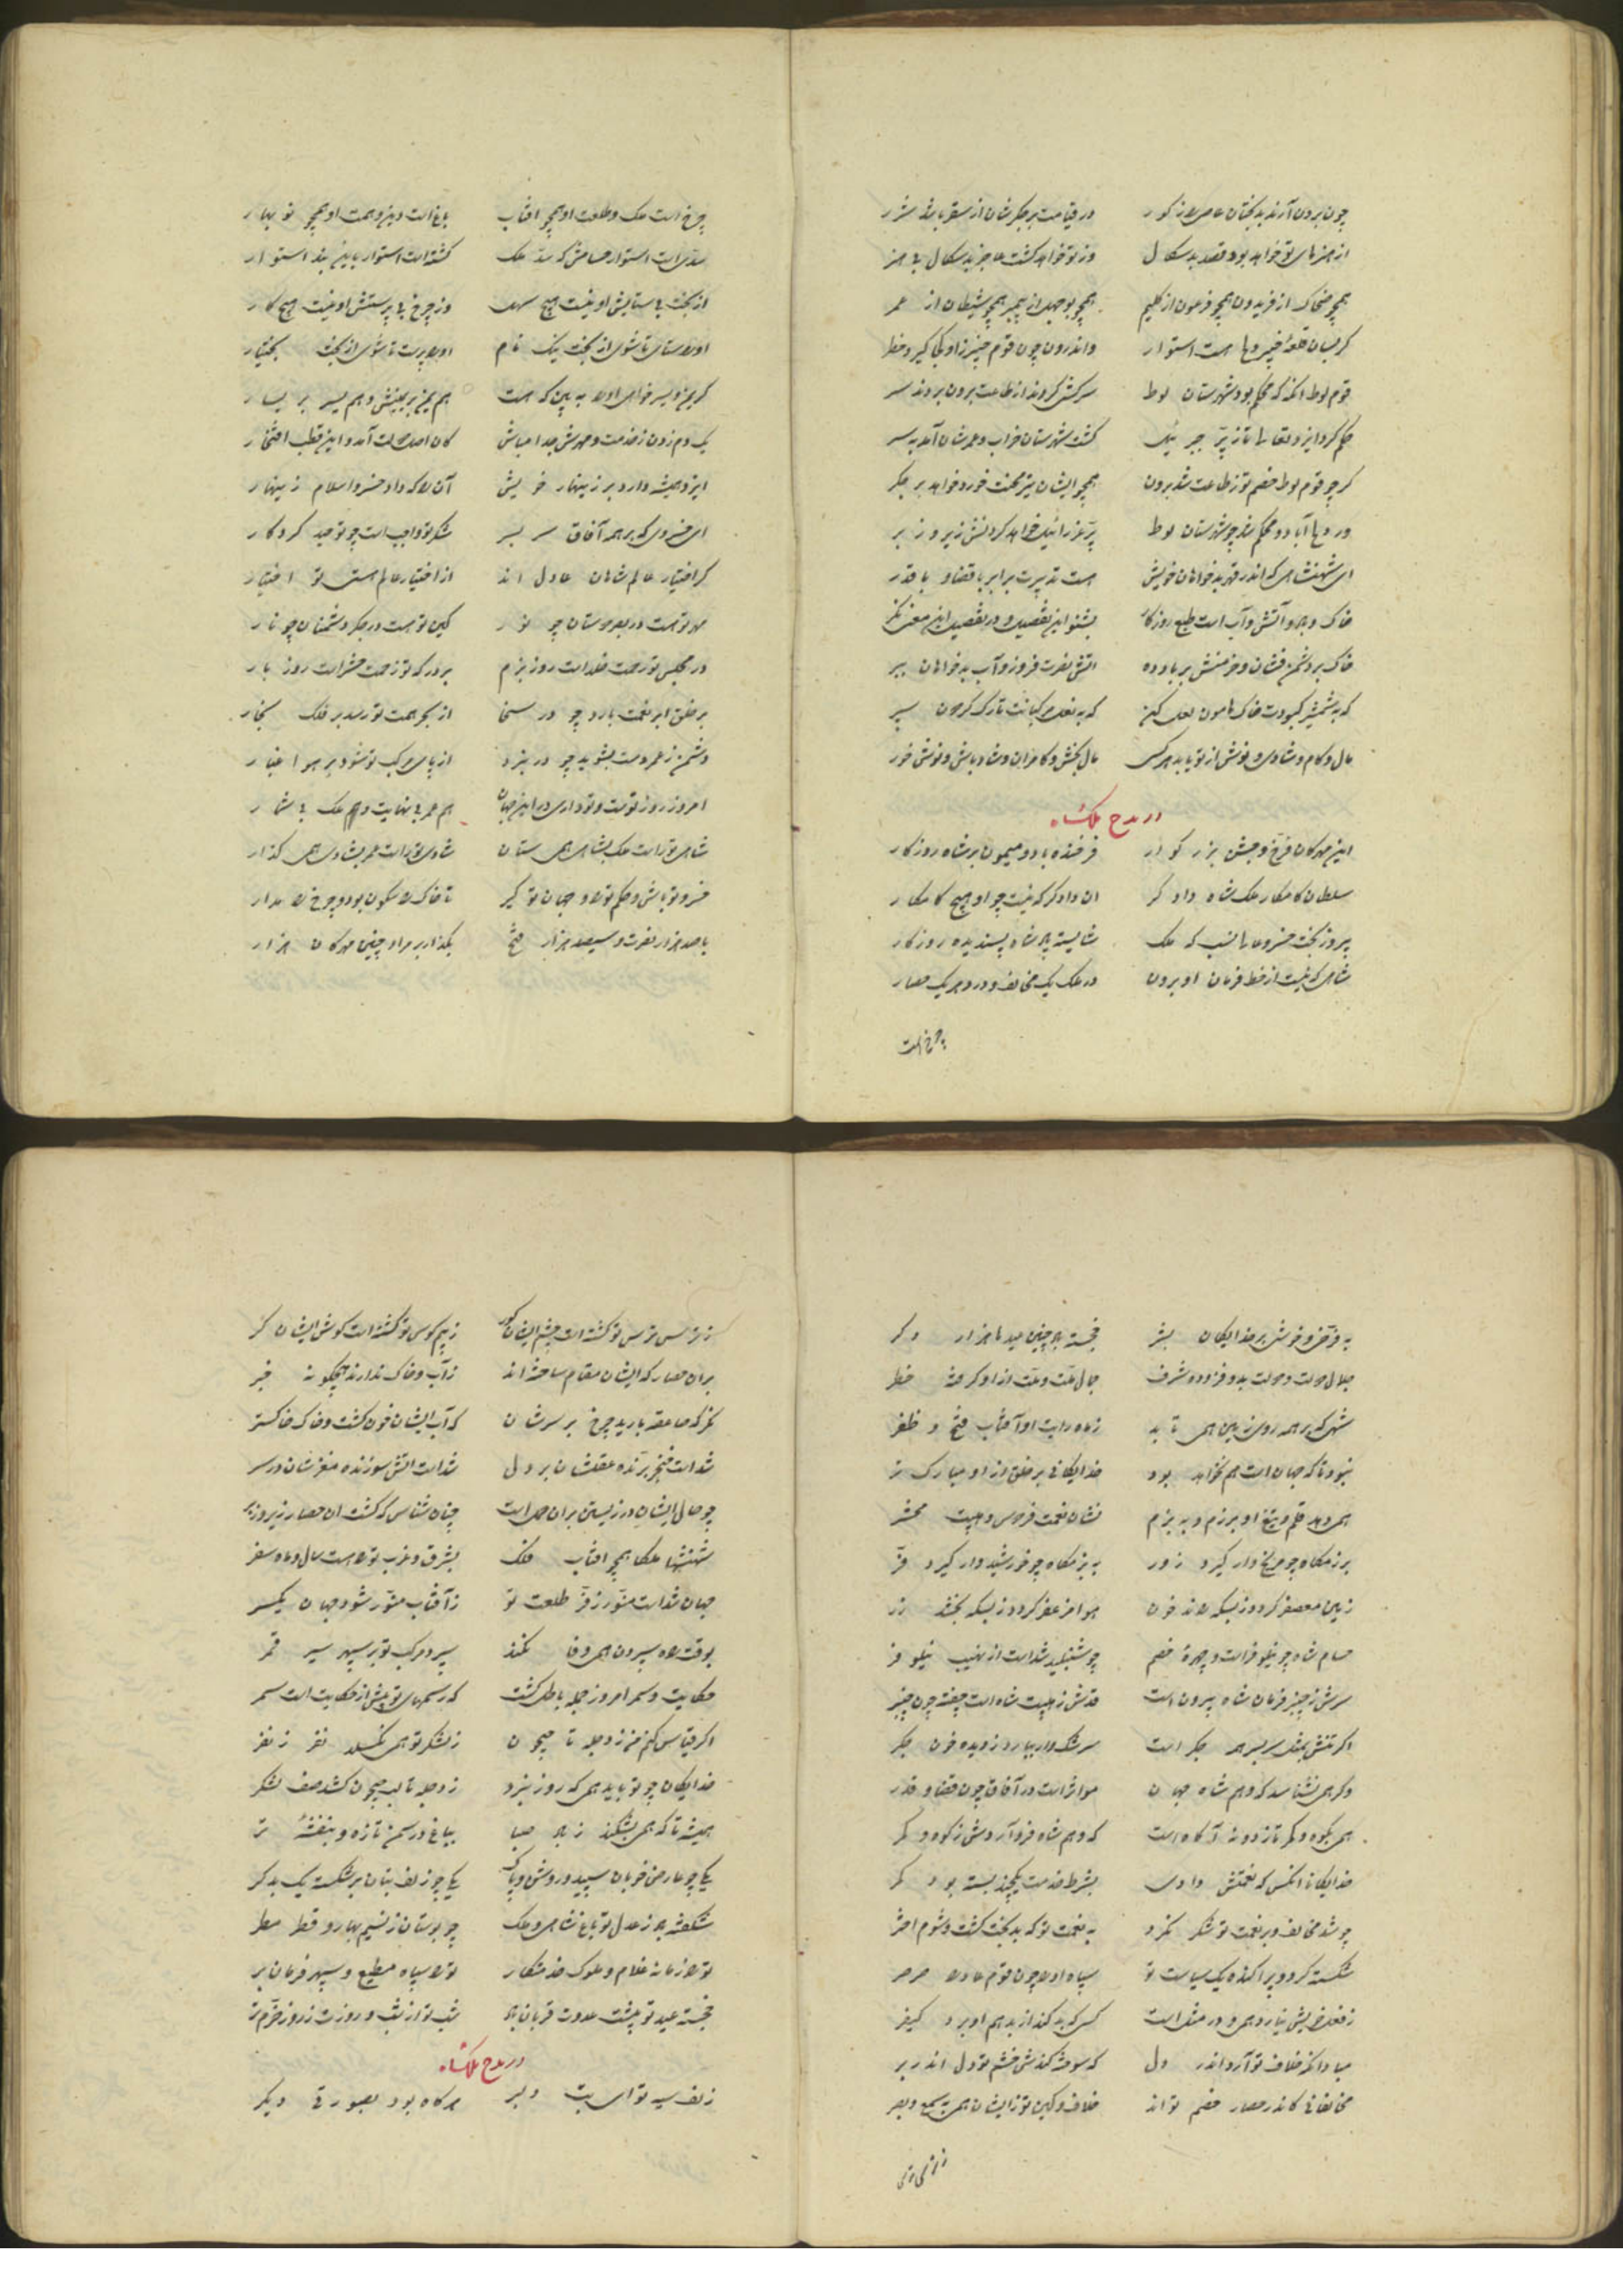 چون برون آرند بدبختان عاصی را ز کور در قیامت بر جگرشان از سقر باشد شرر
از هنرهای تو خواهد بود قصد بدسکال وز تو خواهد کشت عاجز بدسکال بی هنر
همچو ضحاک از فریدون همچو فرعون از کلیم همچو بوجهل از پیمبر همچو شیطان از عمر
گر بسان قلعهٔ خیبر دها هست استوار واندرون چون قوم خیبر زاو یکی گیرد خطر
قوم لوط آنکه که محکم بود شهرستان لوط سرکشی کردند از طاعت برون بردند سر
حکم کرد ایزد تعالی تا ز پرّ جبرئیل کشت شهرستان خراب و عمرشان آمد بسر
گر چو قوم لوط خصم تو ز طاعت شد برون همچو ایشان تیر محنت خورد خواهد بر جگر
ور دها آباد و محکم شد چو شهرستان لوط پرّ عزرائیل خواهد کردنش زیر و زبر
ای شهنشاهی که اندر قهر بدخواهان خویش هست تدبیرت برابر با قضا و با قدر
خاک و باد و آتش و آب است طبع روزگار بشنو این تفصیل و در تفصیل این معنی نگر
خاک بر دشمن فشان و خرمنش بر باد ده آتش نصرت فروز و آب بدخواهان ببر
که به شمشیر کبودت خاک هامون لعل کن که به نعل مرکبانت تارک گردون سپر
مال و کام و شادی و نوش از تو یابد هر کسی مال بخش و کامران و شاد باش و نوش خور
در مدح ملکشاه
این مهرکان فرّخ و جشن بزرگوار فرخنده باد و میمون بر شاه روزگار
سلطان کامکار ملکشاه دادگر آن دادگر که نیست چو او هیچ کامکار
پیروزبخت خسرو عالی نسب که ملک شایسته باد شاه پسندیده روزگار
شاهی که نیست از خط فرمان او برون در ملک یک مخالف و در دهر یک حصار
چرخ است
چرخ است ملک و طلعت او همچو آفتاب باغ است دین و همت او همچو نوبهار
سدّی است استوار حسامش که سدّ ملک کشته است استوار بدین بند استوار
از بخت بی ستایش او نیست هیچ سهل وز چرخ بی پرستش او نیست هیچ کار
او را ستای تا شوی از بخت نیک نام او را پرست تا شوی از بخت بختیار
گر یمن و یسر خواهی او را ببین که هست هم یمن بر یمینش و هم یسر بر یسار
یک دم زدن ز خدمت و مهرش جدا مباش کان اصل دولت آمد و این قطب افتخار
ایزد همیشه دارد بر زینهار خویش آن را که داد خسرو اسلام زینهار
ای خسروی که بر همه آفاق سر بسر شکر تو واجب است چو توحید کردگار
گر اختیار عالم شاهان عادل اند از اختیار عالم هستی تو اختیار
مهر تو هست در بصر دوستان چو نور کین تو هست در جگر دشمنان چو نار
در مجلس تو رحمت خلد است روز بزم بر درگه تو زحمت حشر است روز بار
بر خلق ابر نعمت بارد چو در سخا از بحر همت تو رسد بر فلک بخار
دشمن ز عمر دست بشوید چو در نبرد از پای مرکب تو شود بر هوا غبار
امروز روز توست و تو داری در این جهان هم عمر بی نهایت و هم ملک بی شمار
شاهی تو راست ملک بشاهی همی ستان شادی تو راست عمر بشادی همی گذار
خسرو تو باش و حکم تو ران و جهان تو گیر تا خاک را سکون بود و چرخ را مدار
با صد هزار نصرت و سیصد هزار فتح بگذار بر مراد چنین مهرکان هزار
به فرّخی و خوشی بر خدایگان بشر خجسته باد چنین عید ها هزار دگر
جلال دولت و دولت بدو فزوده شرف جمال ملّت و ملّت از او گرفته خطر
شهی که بر همه روی زمین همی تابد ز ماه رایت او آفتاب فتح و ظفر
نبود تا که جهان است هم نخواهد بود خدایگانی بر خلق از او مبارک تر
همی دهد قلم و تیغ او برزم و به بزم نشان نعمت فردوس و هیبت محشر
برزمگاه چو مریخ وار گیرد زور به بزمگاه چو خورشید وار گیرد فرّ
زمین معصفر گردد ز بسکه راند خون هوا مزعفر گردد ز بسکه بخشد زر
حسام شاه چو نیلوفر است و چهرهٔ خصم چو شنبلید شد است از نهیب نیلوفر
سرش ز چنبر فرمان شاه بیرون است قدش ز هیبت شاه است چفته چون چنبر
اگر تنش بمثل سر بسر همه جگر است سرشک وار ببارد ز دیده خون جگر
دگر همی نشناسد که وهم شاه جهان مؤثر است در آفاق چون قضا و قدر
همی بکوه و کمر تازد و نه آگاه است که وهم شاه فرو آردش ز کوه و کمر
خدایگانا آنکس که نعمتش دادی بشرط خدمت یکچند بسته بود کمر
چو شد مخالف و بر نعمت تو شکر نکرد به نعمت تو که بدبخت کشت و شوم اختر
شکسته کرد و پراکنده یک سیاست تو سپاه او را چون قوم عاد را صرصر
ز فعل خویش نیارد همی و در مثل است کسی که بد کند از بد هم او برد کیفر
مباد آنکه خلاف تو آرد اندر دل که سوخته کندش خشم تو دل اندر بر
مخالفانی کاندر حصار خصم تواند خلاف و کین تو زایشان همی سمع و بصر
ز ترس
ز ترس ترس تو کشته است چشم ایشان کور ز بیم کوس تو کشته است کوش ایشان کر
بران حصار که ایشان مقام ساخته اند ز آب و خاک ندارند هیچگونه خبر
مگر که صاعقه بارید چرخ بر سرشان که آب ایشان خون کشت و خاک خاکستر
شد است خنجر برّنده عقلشان بر دل شد است آتش سوزنده مغزشان در سر
چو حال ایشان در زیستن بران حال است چنان شناس که کشت آن حصار زیر و زبر
شهنشها ملکا همچو آفتاب فلک بشرق و غرب تو را هست سال و ماه سفر
جهان شد است منوّر ز فرّ طلعت تو ز آفتاب منوّر شود جهان یکسر
بوقت راه سپردن همی وفا نکند سپرد مرکب تو بر سپهر سیر قمر
حکایت و سمر امروز جمله باطل گشت که رسمهای تو بیش از حکایت است و سمر
اگر قیاس کنم من ز دجله تا جیحون ز لشکر تو همی نگسلد نفر ز نفر
خدایگان چو تو باید همی که روز نبرد ز دجله تا لب جیحون کشد صف لشکر
همیشه تا که همی بشکفد ز باد صبا بباغ در سمن تازه و بنفشهٔ تر
یکی چو عارض خوبان سپید و روشن و پاک یکی چو زلف بتان بر شکسته یک بدگر
شکفته باد ز عدل تو باغ شاهی و ملک چو بوستان ز نسیم بهار و قطر مطر
تو را زمانه غلام و ملوک خدمتکار تو را سپاه مطیع و سپهر فرمان بر
خجسته عید تو پیشت عدوت قربان باد شب تو از شب و روزت ز روز خرّم تر
در مدح ملکشاه
زلف سیه تو ای بت دلبر هر گاه بود بصورتی دیگر